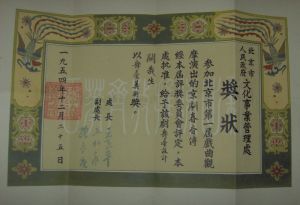 北京市
人民政府
文化事業管理處
獎狀
參加北京市第一屆戲曲觀
摩演出的京劇春香傳
經本屆評獎委員會評定,本
處批准,給予該劇舞台設計
關義生
以舞台美術獎。
處長
副處長
一九五四年十二月二十五日